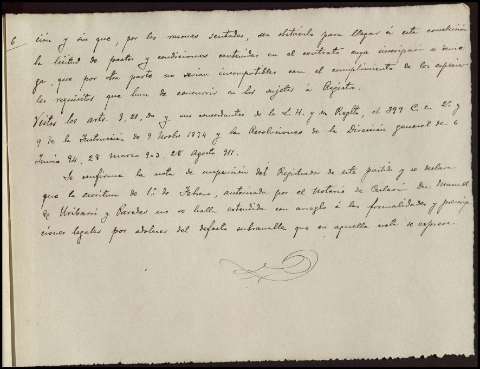 6 ción y sin que, por las mismas sentadas, sea obstáculo para llegar á esta conclusión
la licitud de pactos y condiciones contenidas en el contrato cuya inscripción se denie
ga, que por otra parte no serían incompatibles con el cumplimiento de los especia
les requisitos que han de concurrir en los sujetos á Registro.
Vistos los arts. 9, 21, 30 y sus concordantes de la L. H. y su Reglto, el 397 C. en 2º y
9 de la Instrucción de 9 Novbe 1874 y las Resoluciones de la Dirección general de 6
Junio 94, 28 Marzo 903, 28 Agosto 911.
Se confirma la nota de suspensión del Registrador de este partido y se declara
que la escritura de 1º de Febrero, autorizada por el Notario de Don Manuel
de Uribarri y Paredes no se halla extendida con arreglo á las formalidades y prescrip
ciones legales por adolecer del defecto subsanable que en aquella nota se expresa.